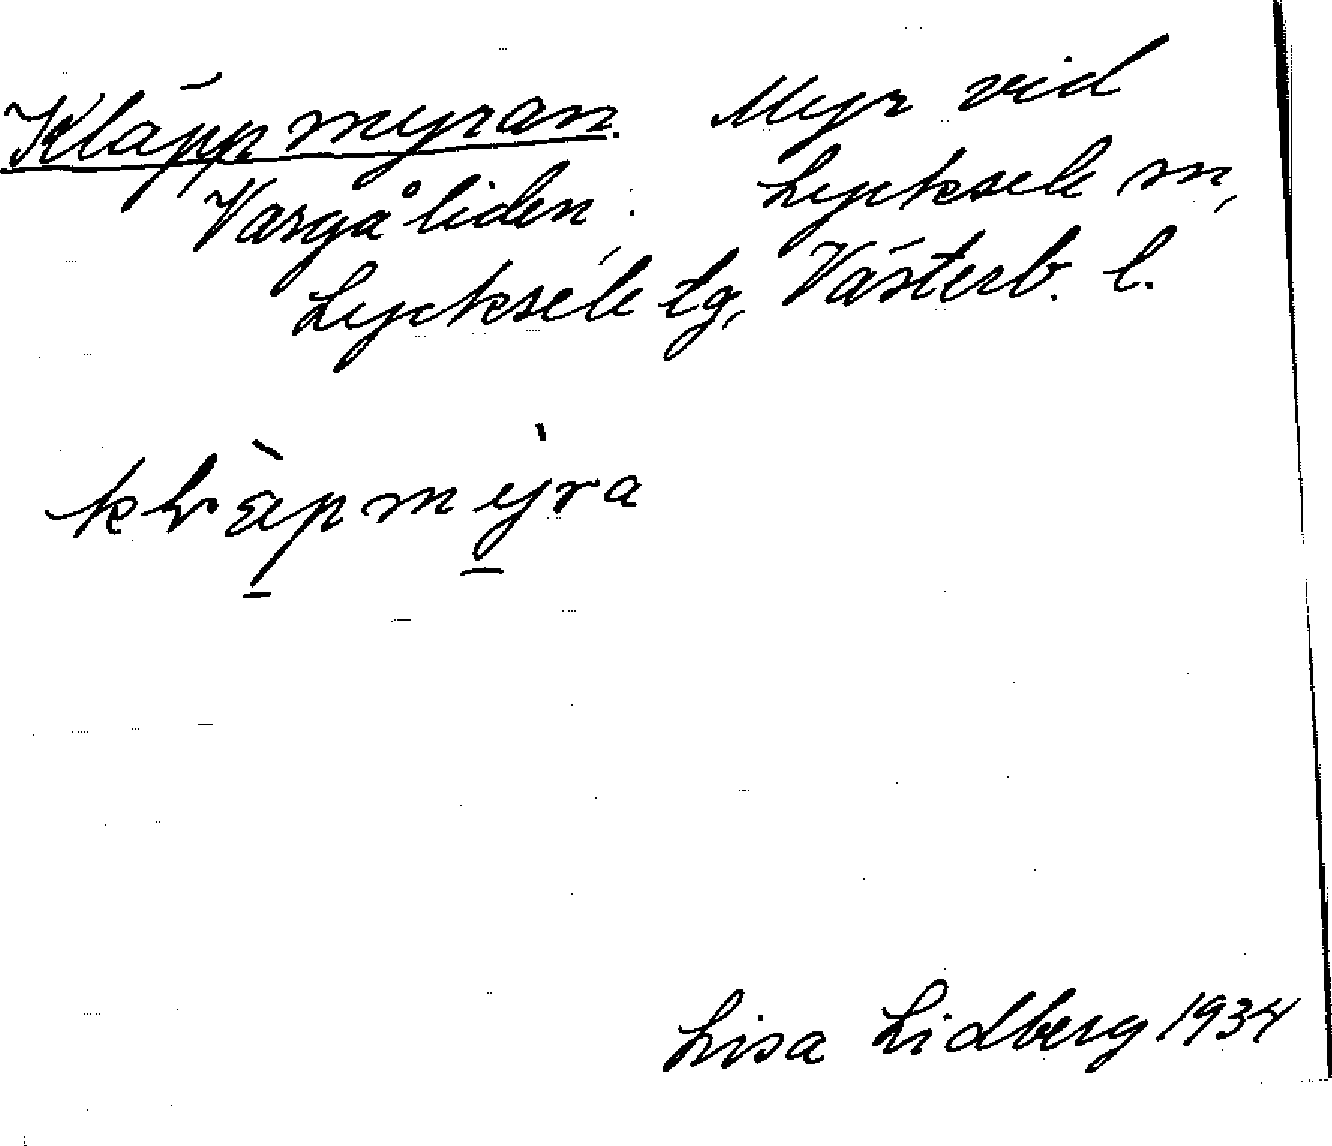 Kläppmyran. Myr vid
Vargåliden. Lycksele sn,
Lycksele tg, Västerb. l.
kläpmyra
Lisa Lidberg 1934